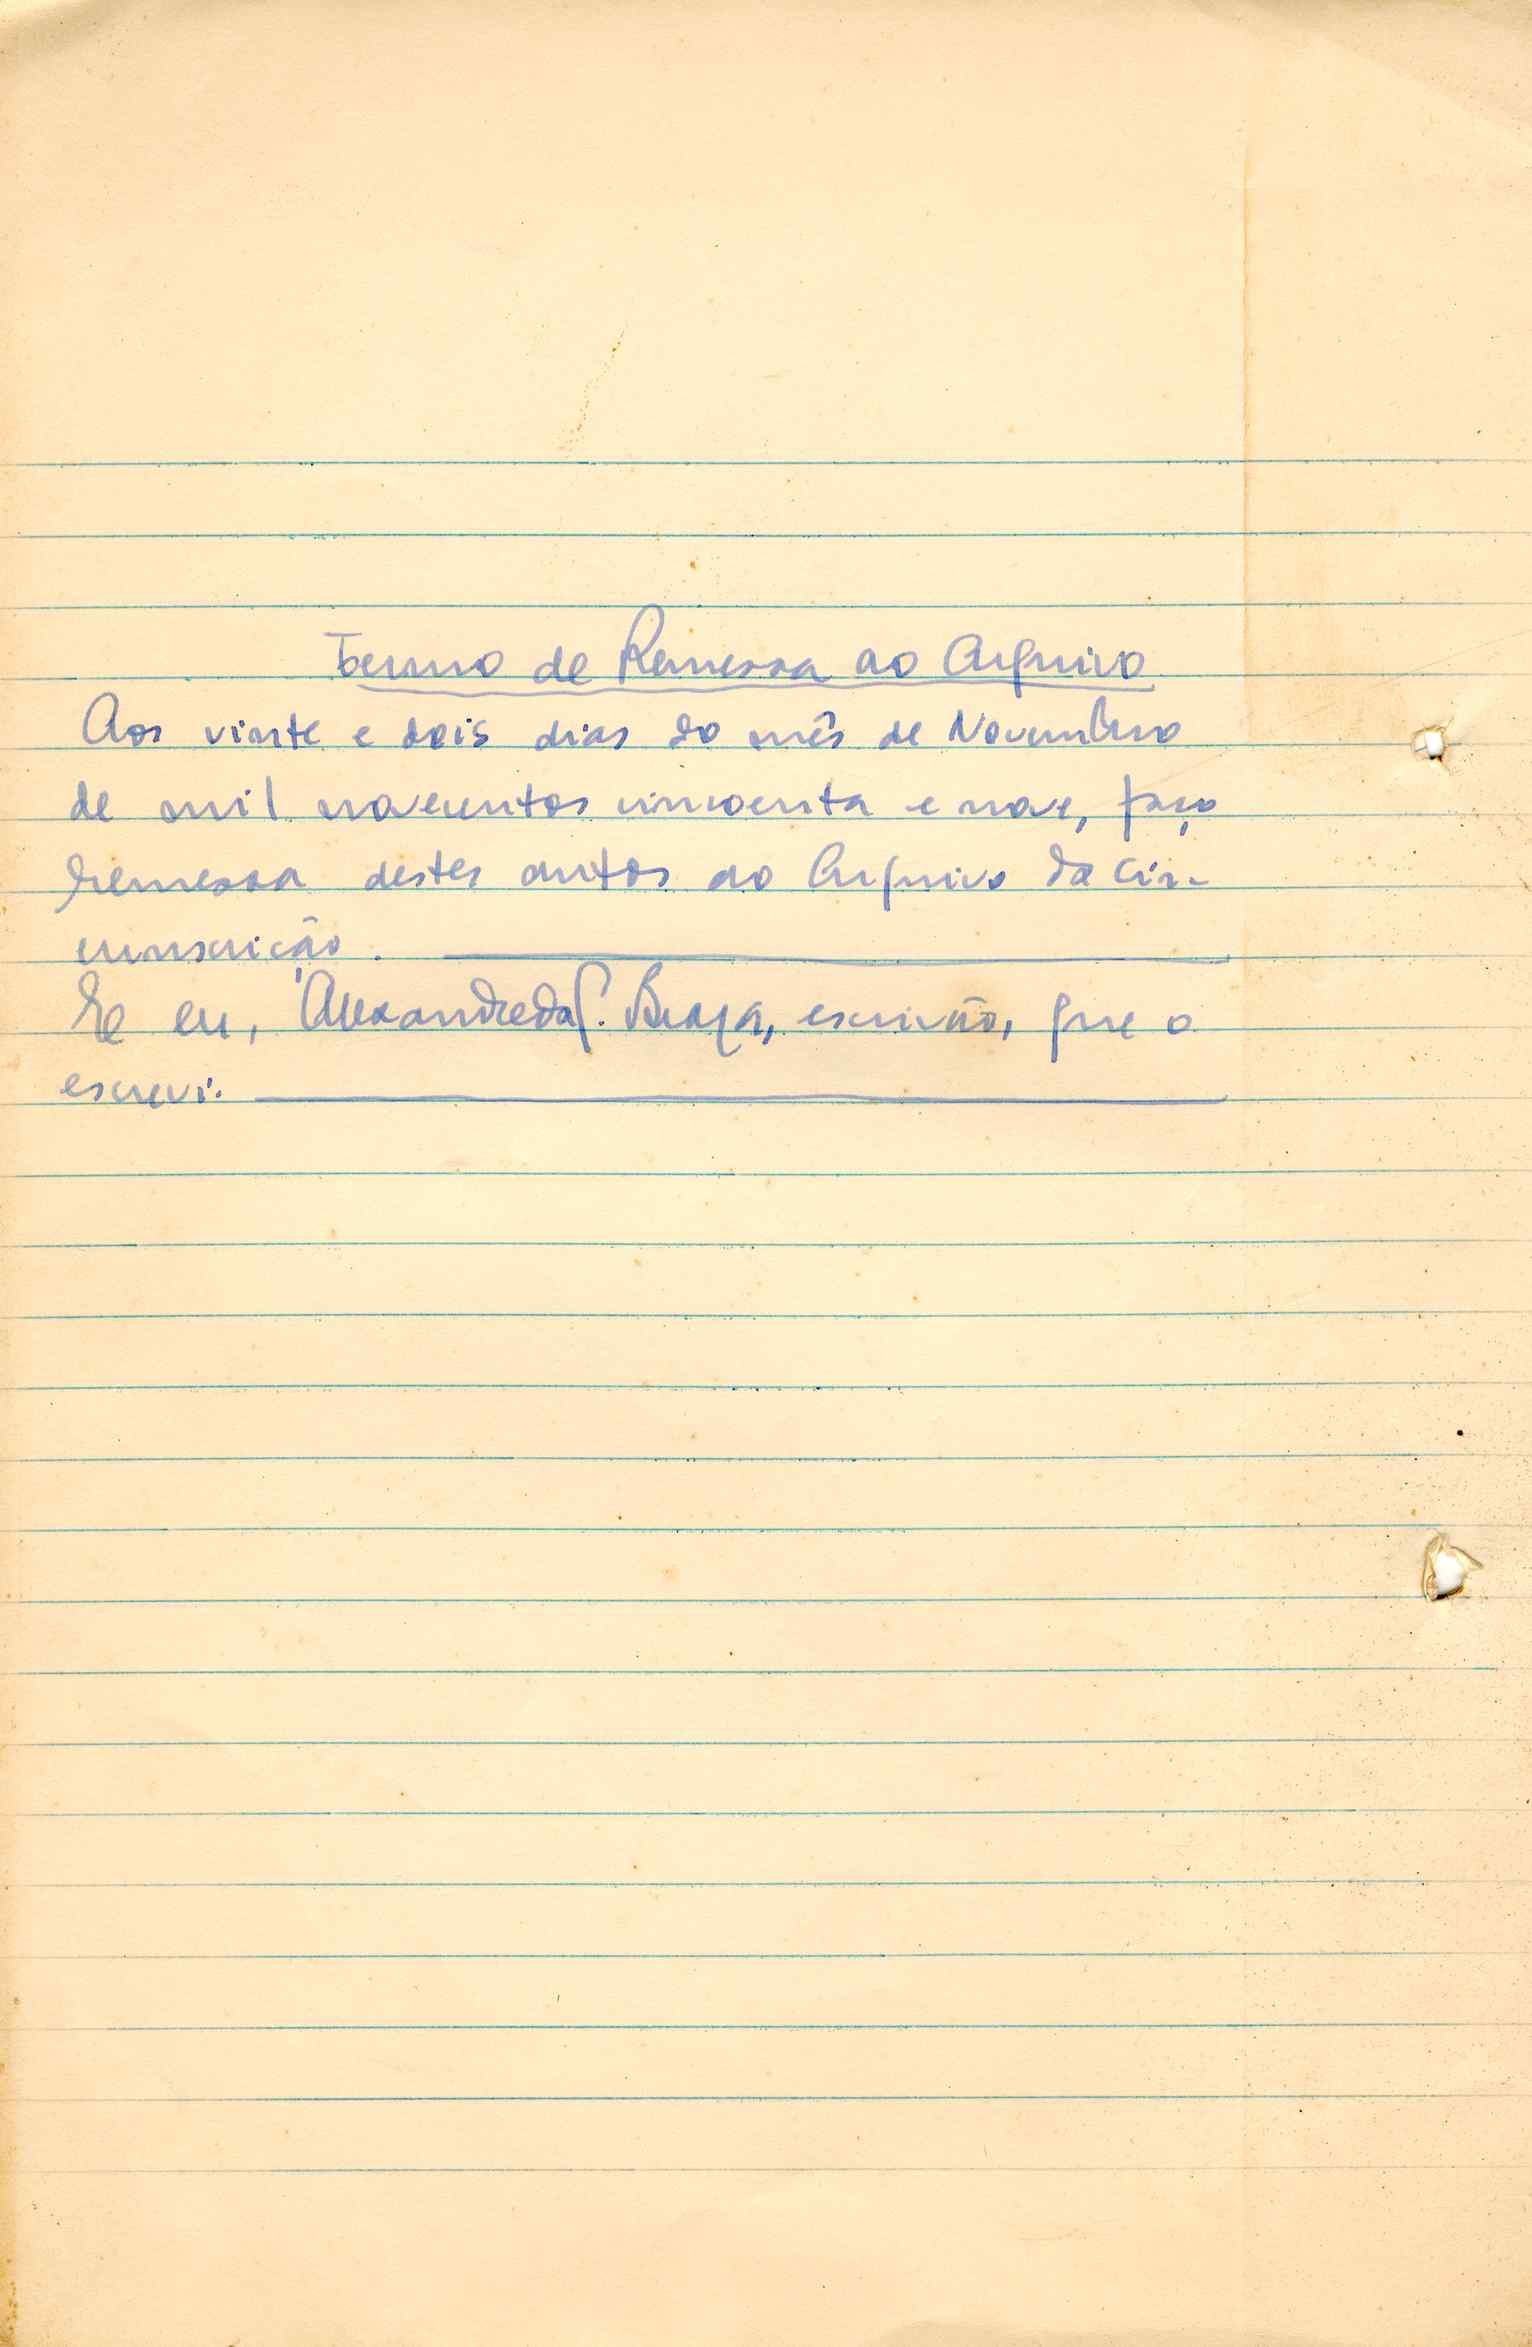 Termo de Remessa ao Arquivo
Aos vinte e dois dias do mês de Novembro
de mil novecentos cincoenta e nove, faço
remessa destes autos ao Arquivo da Cir-
cunscrição.
E eu, Alexandre da S. Braga, escrivão, que o
escrevi.